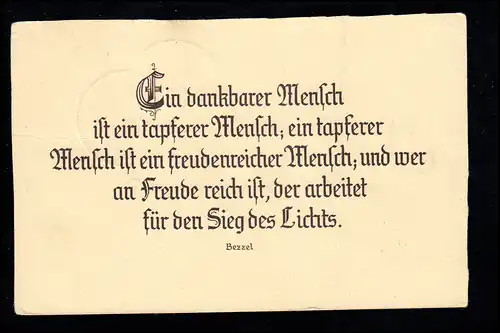 Ein dankbarer Menſch
iſt ein tapferer Menſch; ein tapferer
Menſch iſt ein freudenreicher Menſch; und wer
an Freude reich iſt, der arbeitet
für den Sieg des Lichts.
Bezzel